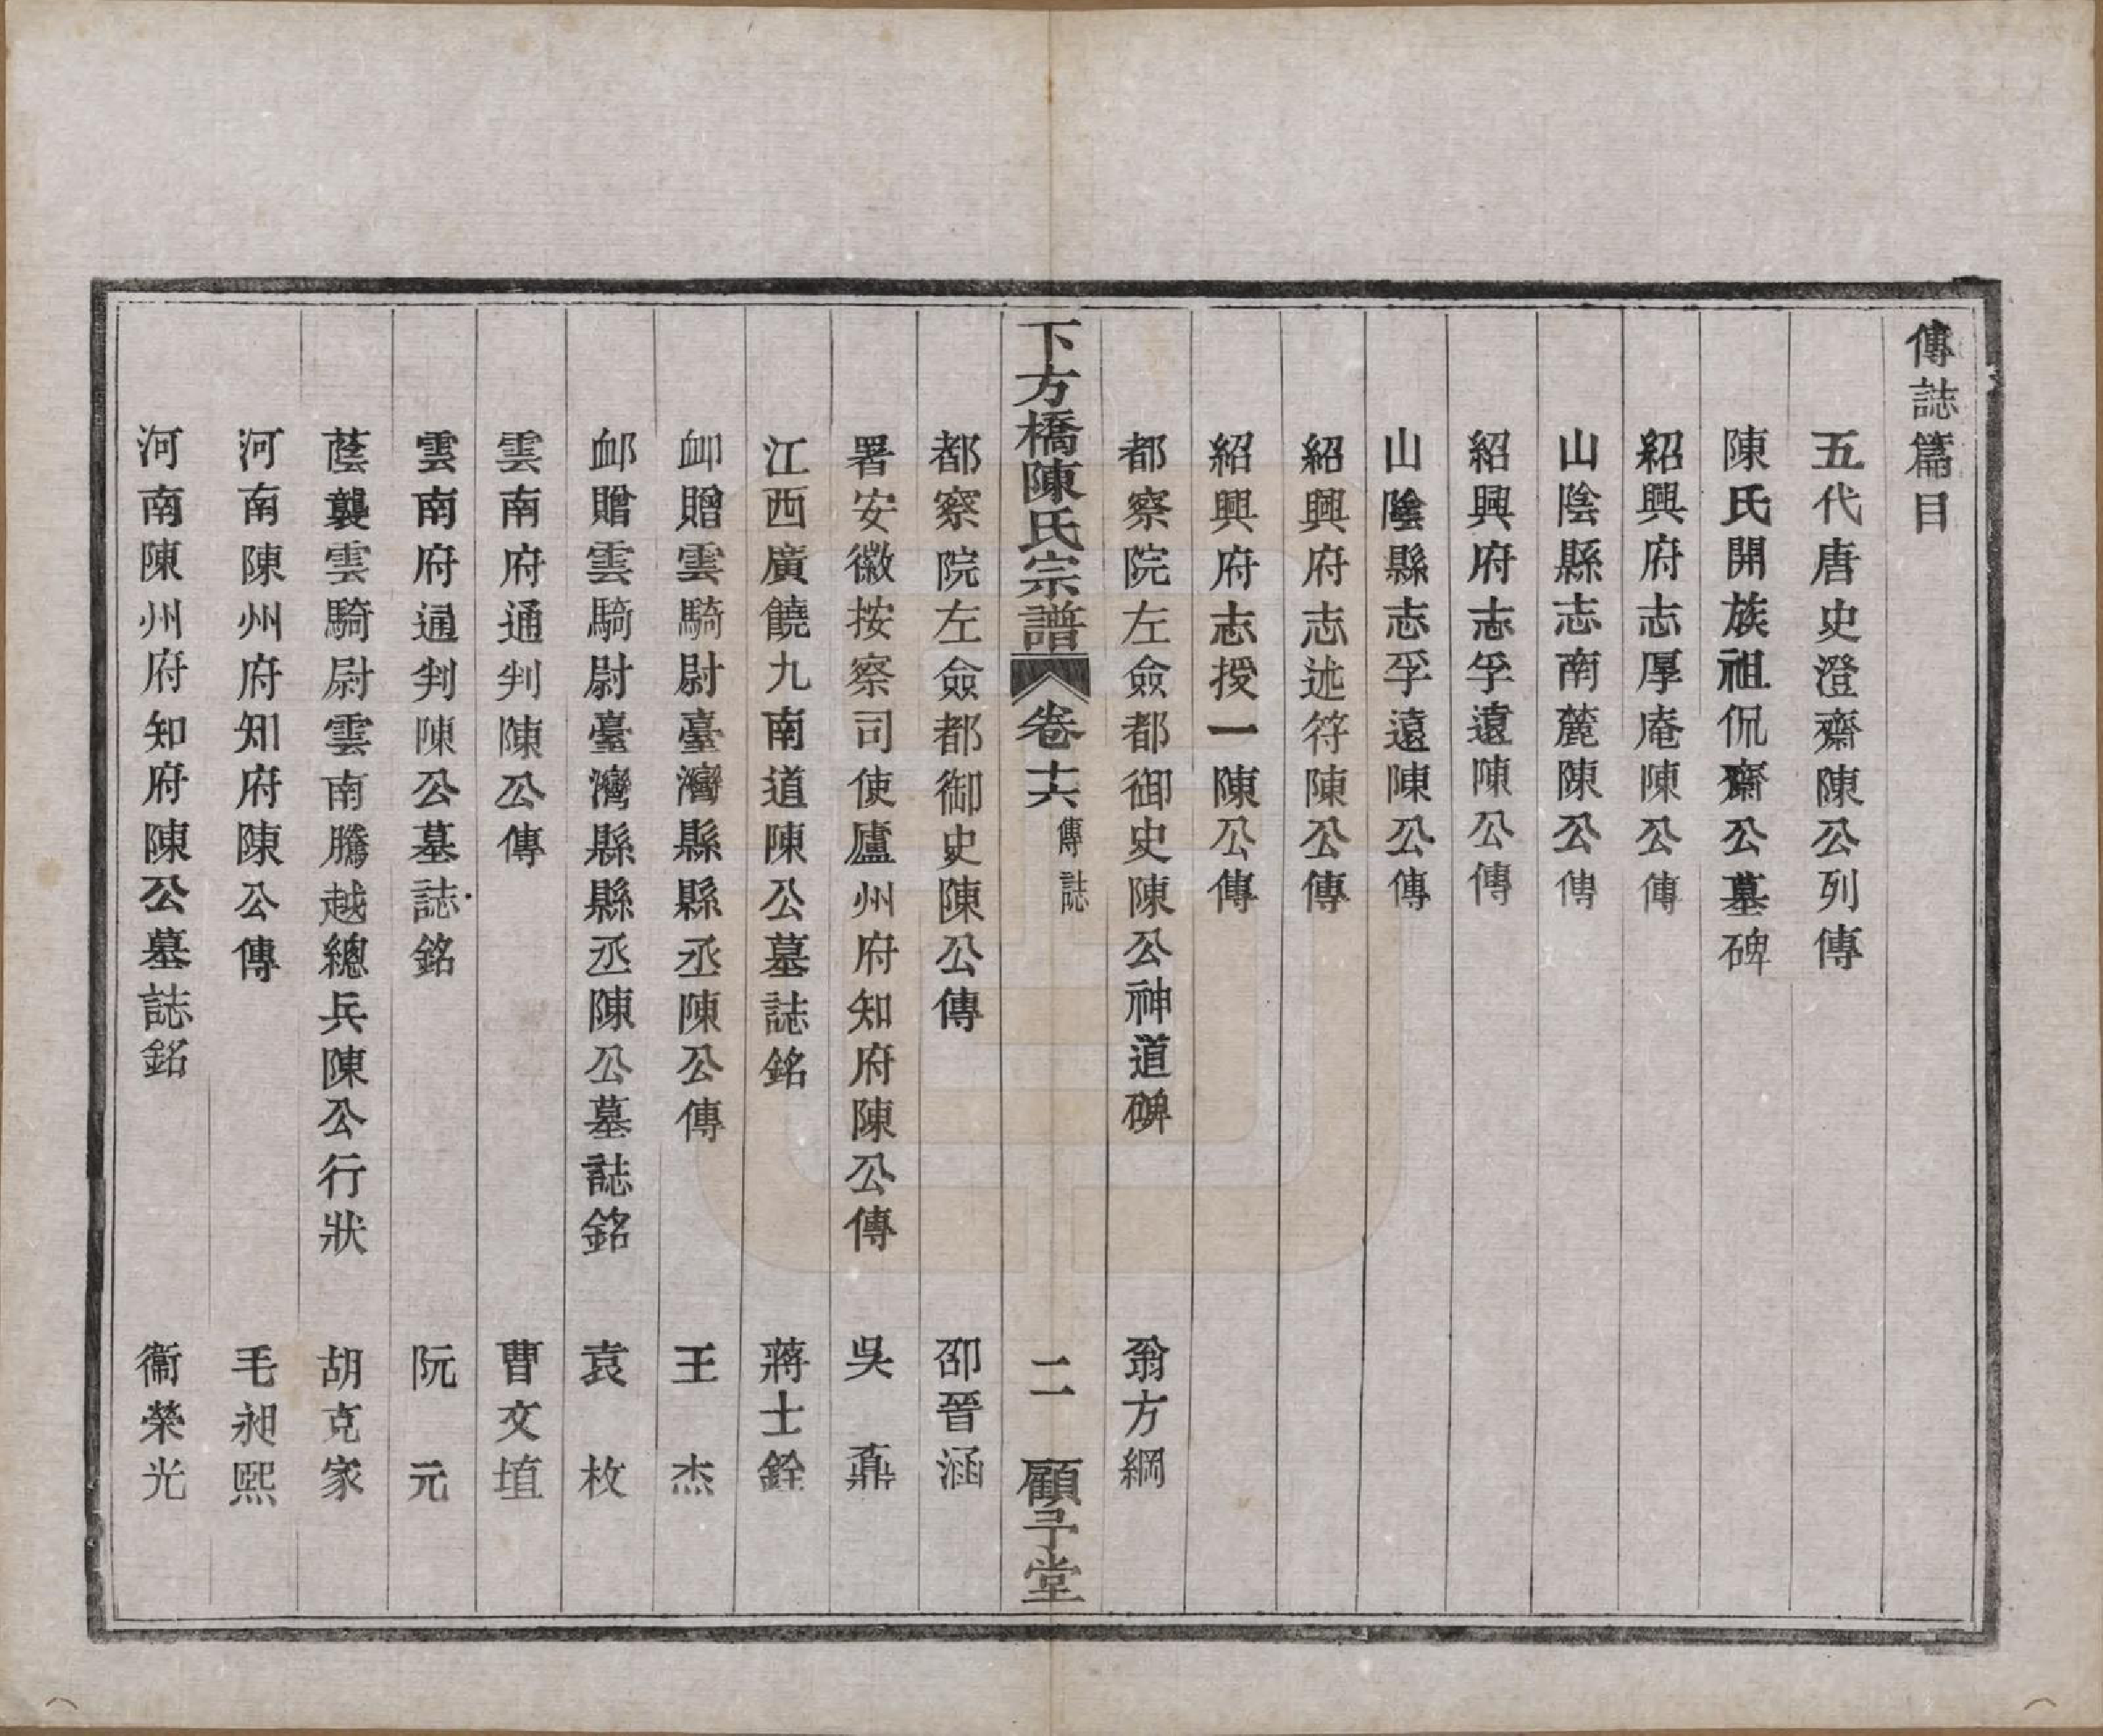 傳誌篇目
五代唐史澄齋陳公列傳
陳氏開族祖侃齋公墓碑
紹興府志厚庵陳公傳
山陰縣志南麓陳公傳
紹興府志孚遠陳公傳
山陰縣志孚遠陳公傳
紹興府志述符陳公傳
紹興府志授一陳公傳
都察院左僉都御史陳公神道碑 翁方綱
下方橋陳氏宗譜 卷十六 傳誌 二 顧予堂
都察院左僉都御史陳公傳 邵晉涵
署安徽按察司使廬州府知府陳公傳 吳鼒
江西廣饒九南道陳公墓誌銘 蔣士銓
卹贈雲騎尉臺灣縣縣丞陳公傳 王杰
卹贈雲騎尉臺灣縣縣丞陳公墓誌銘 袁枚
雲南府通判陳公傳 曹文埴
雲南府通判陳公墓誌銘 阮元
蔭襲雲騎尉雲南騰越總兵陳公行狀 胡克家
河南陳州府知府陳公傳 毛昶熙
河南陳州府知府陳公墓誌銘 衞榮光